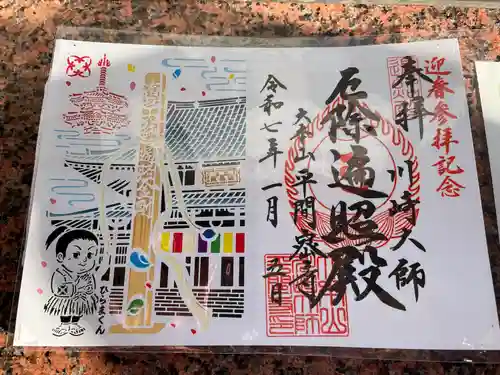 迎春参拝記念
奉拝
川崎大師
厄除遍照殿
大本山平間寺
令和七年一月
五日
ひらまくん